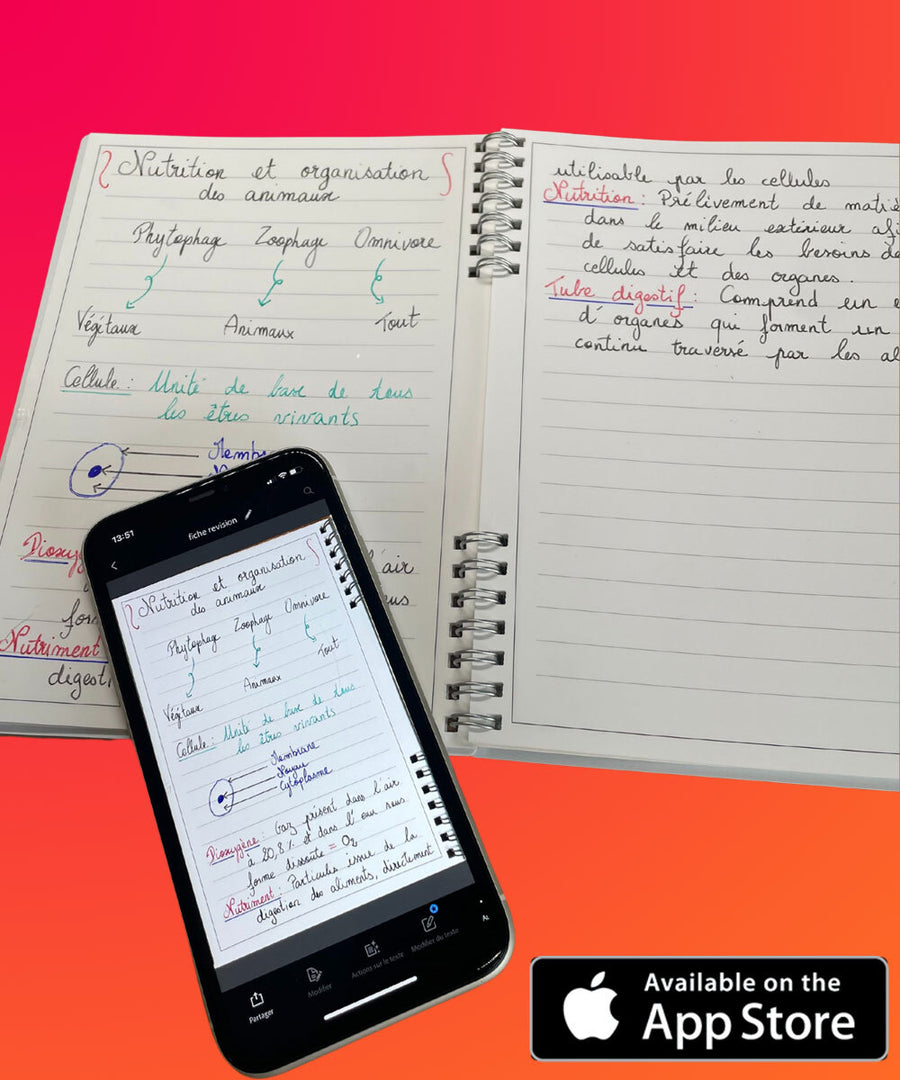 Nutrition et organisation
des animaux
Phytophage Zoophage Omnivore
Végétaux Animaux Tout
Cellule : Unité de base de tous
les êtres vivants
Memb
Dioxyg
l'air
ous
for
Nutriment
digest
utilisable par les cellules
Nutrition : Prélivement de matiè
dans le milieu extérieur afi
de satisfaire les besoins de
cellules et des organes.
Tube digestif : Comprend un e
d'organes qui forment un
continu traversé par les al
13:51
fiche revision
Nutrition et organisation
des animaux
Phytophage Zoophage Omnivore
Végétaux Animaux Tout
Cellule : Unité de base de tous
les êtres vivants
Membrane
Noyau
Cytoplasme
Dioxygène : Gaz présent dans l'air
à 20,8% et dans l'eau sous
forme dissoute = O2
Nutriment : Particules issue de la
digestion des aliments, directement
Partager
Modifier
Actions sur le texte
Modifier du texte
Available on the
App Store